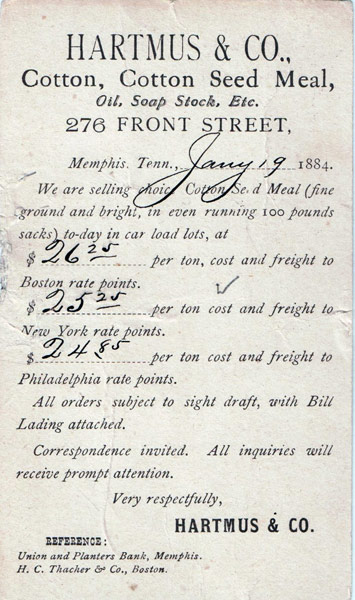 HARTMUS & CO.,
Cotton, Cotton Seed Meal,
Oil, Soap Stock, Etc.
276 FRONT STREET,
Memphis. Tenn., Jany 19 1884.
We are selling choice Cotton Seed Meal (fine
ground and bright, in even running 100 pounds
sacks) to-day in car load lots, at
$ 26 25 per ton, cost and freight to
Boston rate points.
$ 25 25 per ton cost and freight to
New York rate points.
$ 24 85 per ton cost and freight to
Philadelphia rate points.
All orders subject to sight draft, with Bill
Lading attached.
Correspondence invited. All inquiries will
receive prompt attention.
Very respectfully,
HARTMUS & CO.
REFERENCE:
Union and Planters Bank, Memphis.
H. C. Thacher & Co., Boston.